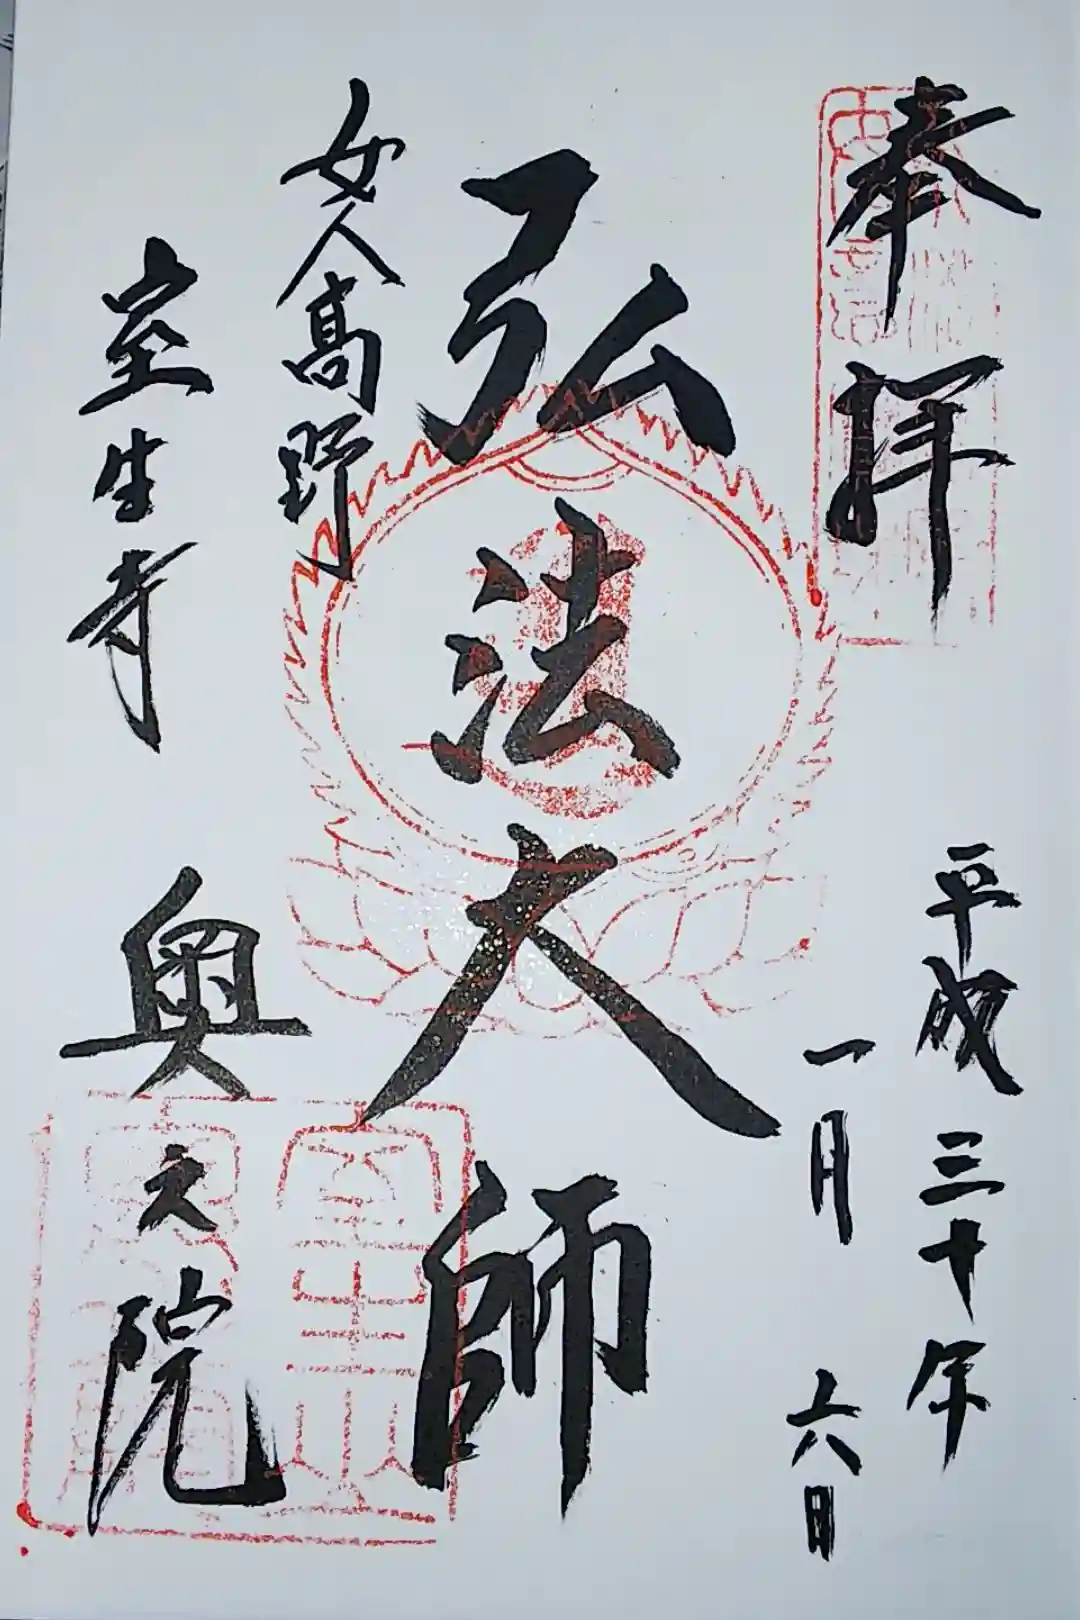 奉拝
平成三十年
一月六日
弘法大師
女人高野
室生寺
奥之院